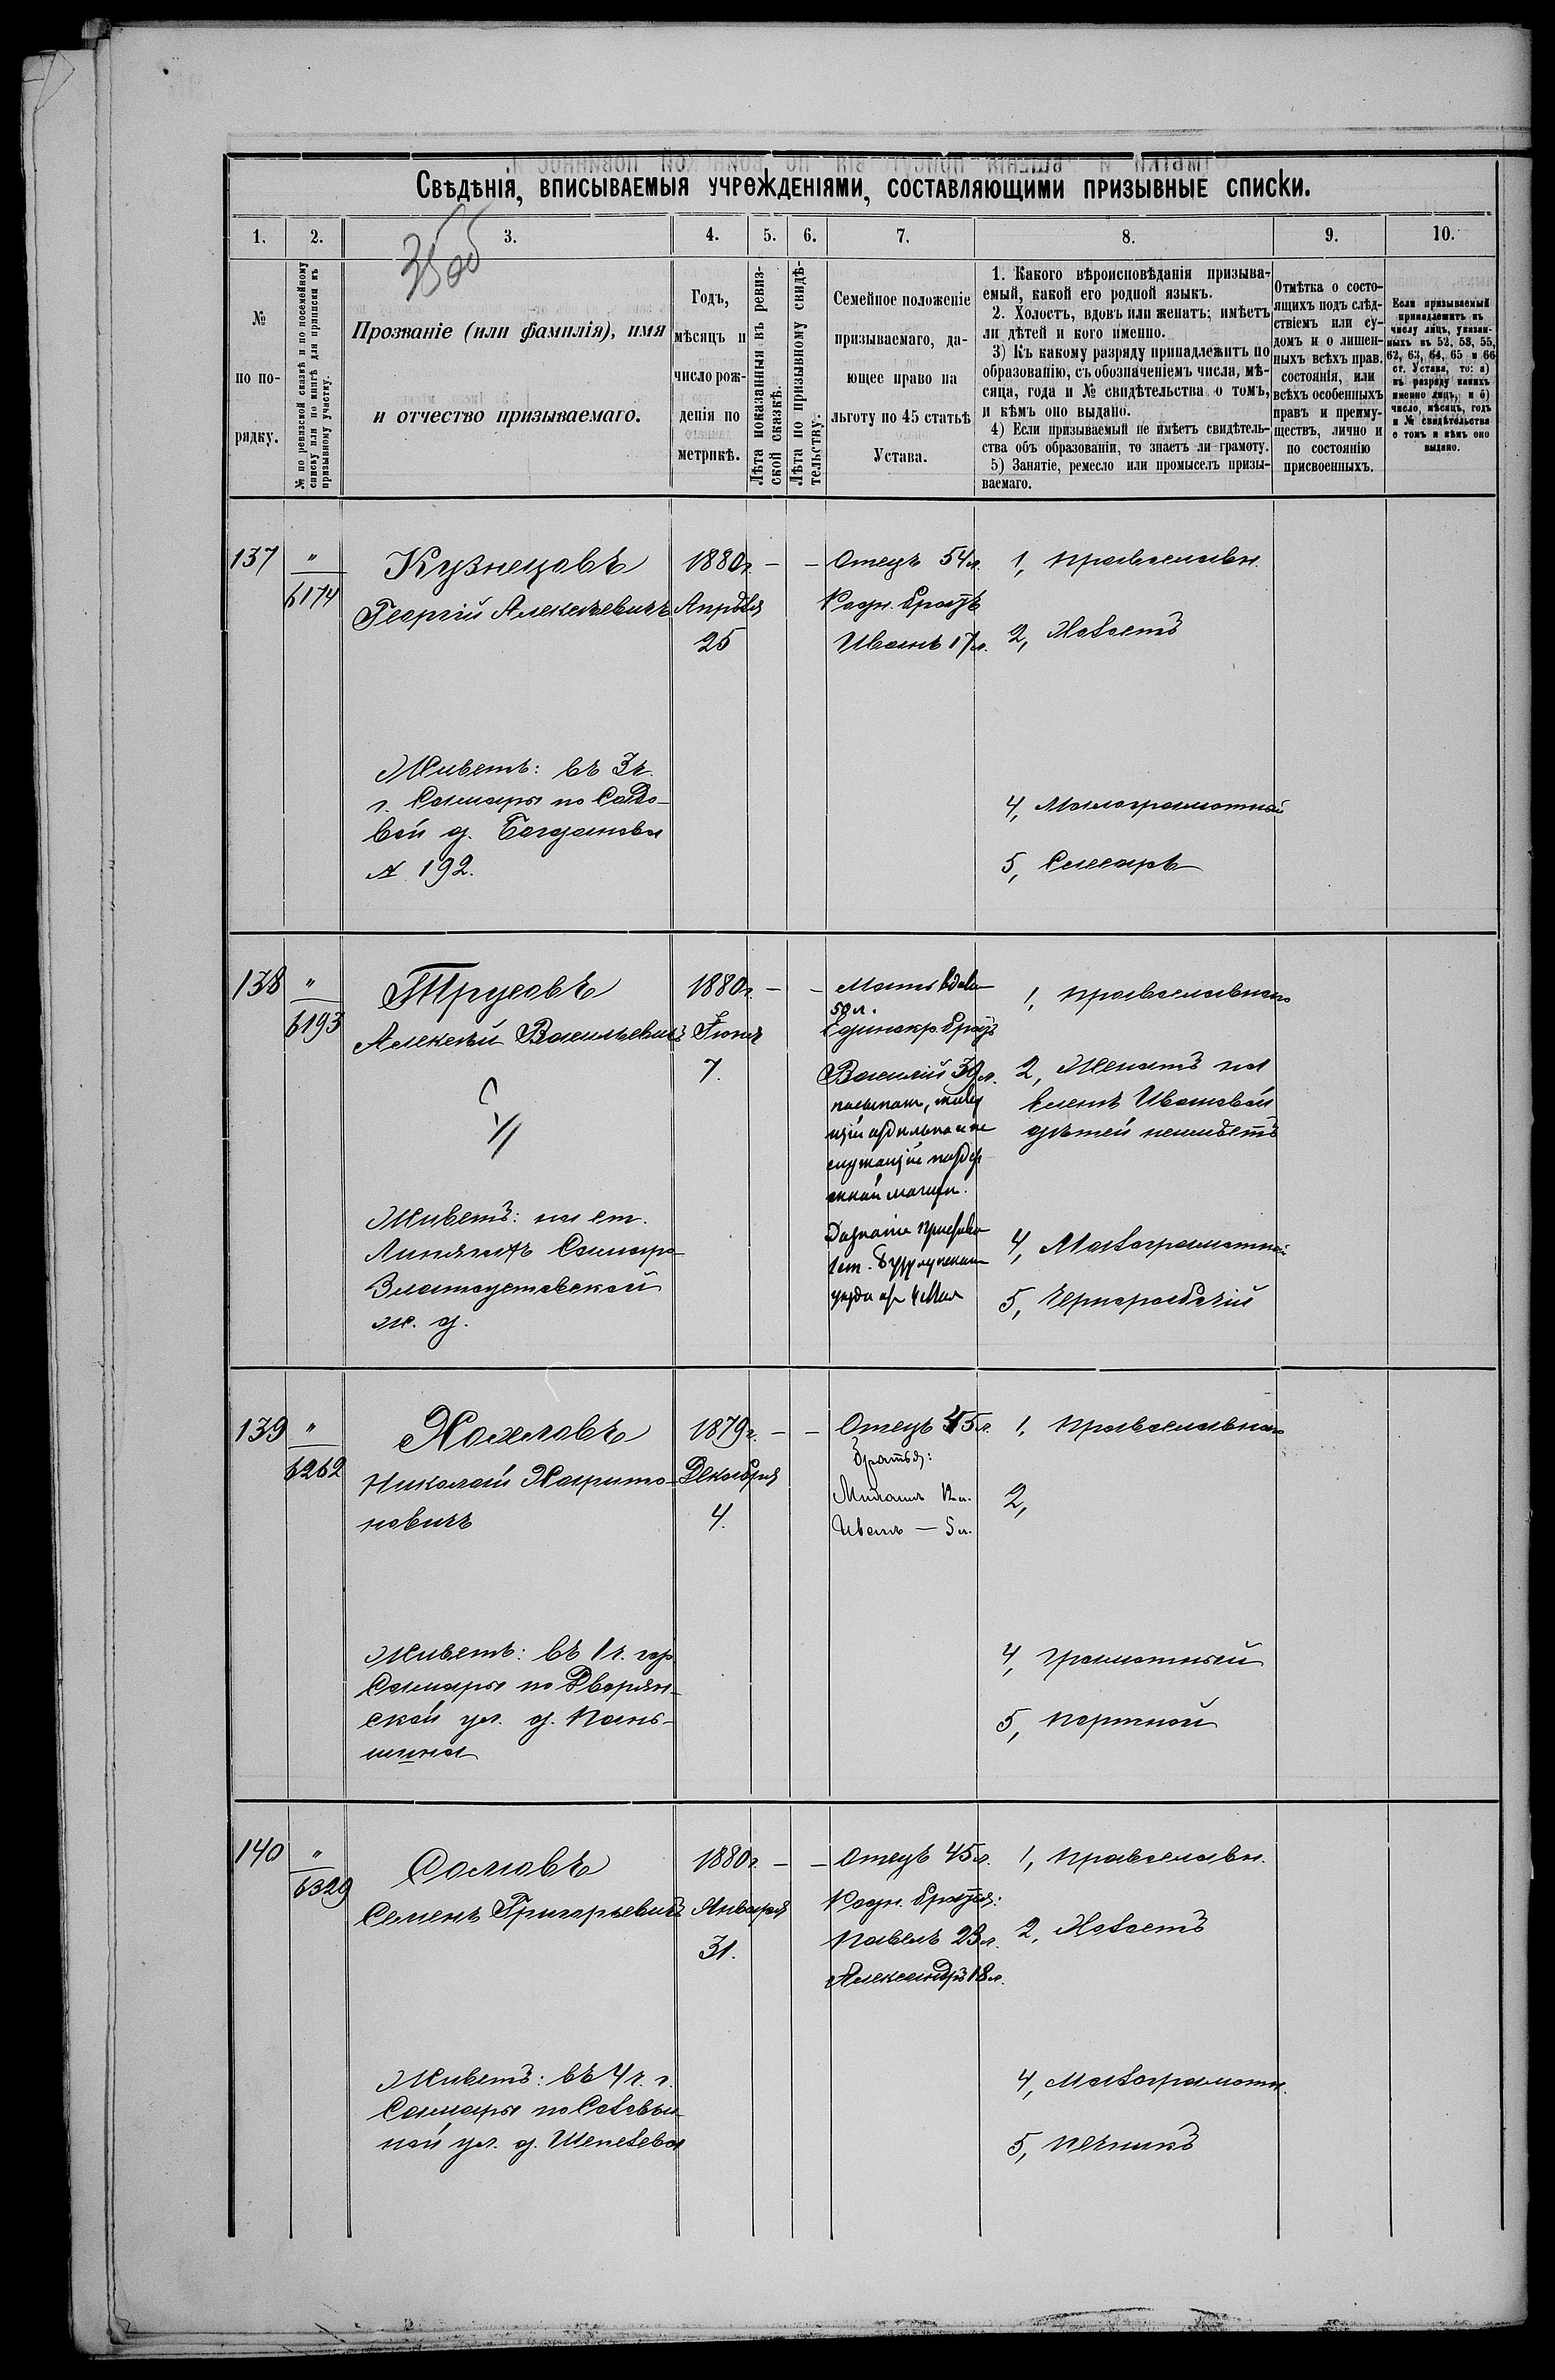 Свѣдѣнія, вписываемыя учрежденіями, составляющими призывные списки.
1. 2. 3. 4. 5. 6. 7. 8. 9. 10.
№
по по-
рядку.
№ по ревизской сказкѣ и по посемейному
списку или по книгѣ для приписки къ
призывному участку.
Прозваніе (или фамилія), имя
и отчество призываемаго.
Годъ,
мѣсяцъ и
число рож-
денія по
метрикѣ.
Лѣта показанныя въ ревиз-
ской сказкѣ.
Лѣта по призывному свидѣ-
тельству.
Семейное положеніе
призываемаго, да-
ющее право на
льготу по 45 статьѣ
Устава.
1. Какого вѣроисповѣданія призыва-
емый, какой его родной языкъ.
2. Холостъ, вдовъ или женатъ; имѣетъ
ли дѣтей и кого именно.
3) Къ какому разряду принадлежитъ по
образованію, съ обозначеніемъ числа, мѣ-
сяца, года и № свидѣтельства о томъ,
и кѣмъ оно выдано.
4) Если призываемый не имѣетъ свидѣтель-
ства объ образованіи, то знаетъ ли грамоту.
5) Занятіе, ремесло или промыселъ призы-
ваемаго.
Отмѣтка о состо-
ящихъ подъ слѣд-
ствіемъ или су-
домъ и о лишен-
ныхъ всѣхъ прав.
состоянія, или
всѣхъ особенныхъ
правъ и преиму-
ществъ, лично и
по состоянію
присвоенныхъ.
Если призываемый
принадлежитъ къ
числу лицъ, указан-
ныхъ въ 52, 53, 55,
62, 63, 64, 65 и 66
ст. Устава, то: а)
къ разряду какихъ
именно лицъ, и б)
число, мѣсяцъ, годъ
и № свидѣтельства
о томъ и кѣмъ оно
выдано.
137
"
6174
Кузнецовъ
Георгій Алексѣевичъ
Живетъ: въ 3 ч.
г. Самары по Садо-
вой д. Богданова
№ 192.
1880 г.
Апрѣля
25
— —
Отецъ 54 л.
Родн. братъ
Иванъ 17 л.
1, Православн.
2, Холостъ
4, Малограмотной
5, Слесарь
138
"
6193
Трусовъ
Алексѣй Васильевичъ
Живетъ: на ст.
Липяги Самаро-
Златоустовской
ж. д.
1880 г.
Іюня
7.
— —
Мать вдова
50 л.
Единокр. братъ
Василій 39 л.
1, Православнаго
2, Женатъ на
Еленѣ Ивановой
дѣтей неимѣетъ
4, Малограмотной
5, Чернорабочій
139
"
6262
Хохловъ
Николай Харито-
новичъ
Живетъ: въ 1 ч. гор.
Самары по Дворян-
ской ул. д. Пань-
шина
1879 г.
Декабря
4.
— —
Отецъ 45 л.
Братья:
Михаилъ 12 л.
Иванъ — 5 л.
1, Православнаго
2,
4, Грамотный
5, Портной
140
"
6329
Сомовъ
Семенъ Григорьевичъ
Живетъ: въ 4 ч. г.
Самары по Соловьи-
ной ул. д. Шепелева
1880 г.
Января
31.
— —
Отецъ 45 л.
Родн. братья:
Павелъ 23 л.
Александръ 18 л.
1, Православн.
2, Холостъ
4, Малограмотн.
5, Печникъ